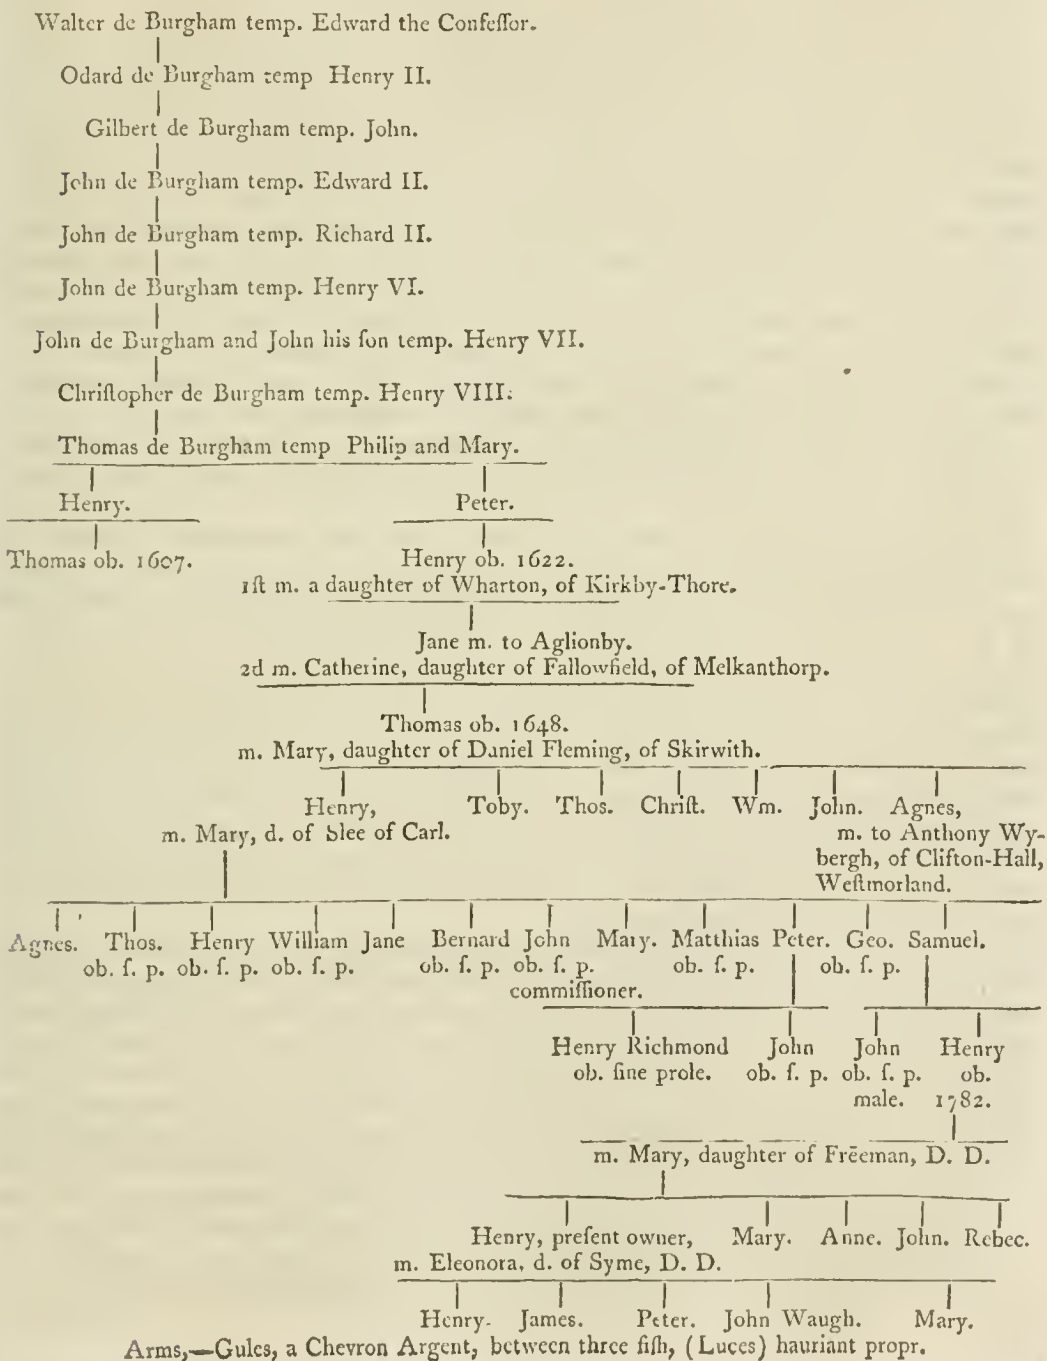 Walter de Burgham temp. Edward the Confeſſor.
Odard de Burgham temp Henry II.
Gilbert de Burgham temp. John.
John de Burgham temp. Edward II.
John de Burgham temp. Richard II.
John de Burgham temp. Henry VI.
John de Burgham and John his ſon temp. Henry VII.
Chriſtopher de Burgham temp. Henry VIII.
Thomas de Burgham temp Philip and Mary.
Henry. Peter.
Thomas ob. 1607. Henry ob. 1622.
1ſt m. a daughter of Wharton, of Kirkby-Thore.
Jane m. to Aglionby.
2d m. Catherine, daughter of Fallowfield, of Melkanthorp.
Thomas ob. 1648.
m. Mary, daughter of Daniel Fleming, of Skirwith.
Henry, Toby. Thos. Chriſt. Wm. John. Agnes,
m. Mary, d. of Slee of Carl. m. to Anthony Wy-
bergh, of Clifton-Hall,
Weſtmorland.
Agnes. Thos. Henry William Jane Bernard John Mary. Matthias Peter. Geo. Samuel.
ob. ſ. p. ob. ſ. p. ob. ſ. p. ob. ſ. p. ob. ſ. p. ob. ſ. p. ob. ſ. p.
commiſſioner.
Henry Richmond John John Henry
ob. ſine prole. ob. ſ. p. ob. ſ. p. ob.
male. 1782.
m. Mary, daughter of Frēeman, D. D.
Henry, preſent owner, Mary. Anne. John. Rebec.
m. Eleonora, d. of Syme, D. D.
Henry. James. Peter. John Waugh. Mary.
Arms,—Gules, a Chevron Argent, between three fiſh, (Luces) hauriant propr.